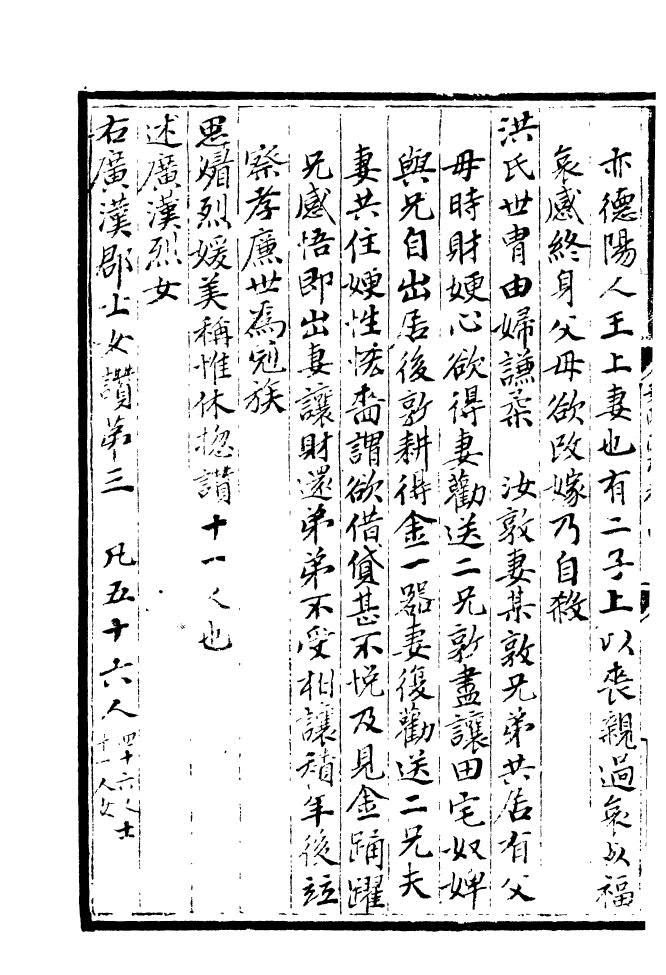 亦德陽人王上妻也有二子上以喪親過哀以福
哀感終身父母欲改嫁乃自殺
洪氏世胄由婦謙柔　汝敦妻某敦兄弟共居有父
母時財㛐心欲得妻勸送二兄敦盡讓田宅奴婢
與兄自出居後敦耕得金一器妻復勸送二兄夫
妻共住㛐性悋嗇謂欲借貸甚不悅及見金踊躍
兄感悟即出妻讓財還弟弟不受相讓積年後竝
察孝廉世爲冠族
思媚烈媛美稱惟休揔讚十一人也
述廣漢烈女
右廣漢郡士女讚第三　凡五十六人四十六人士
十一人女